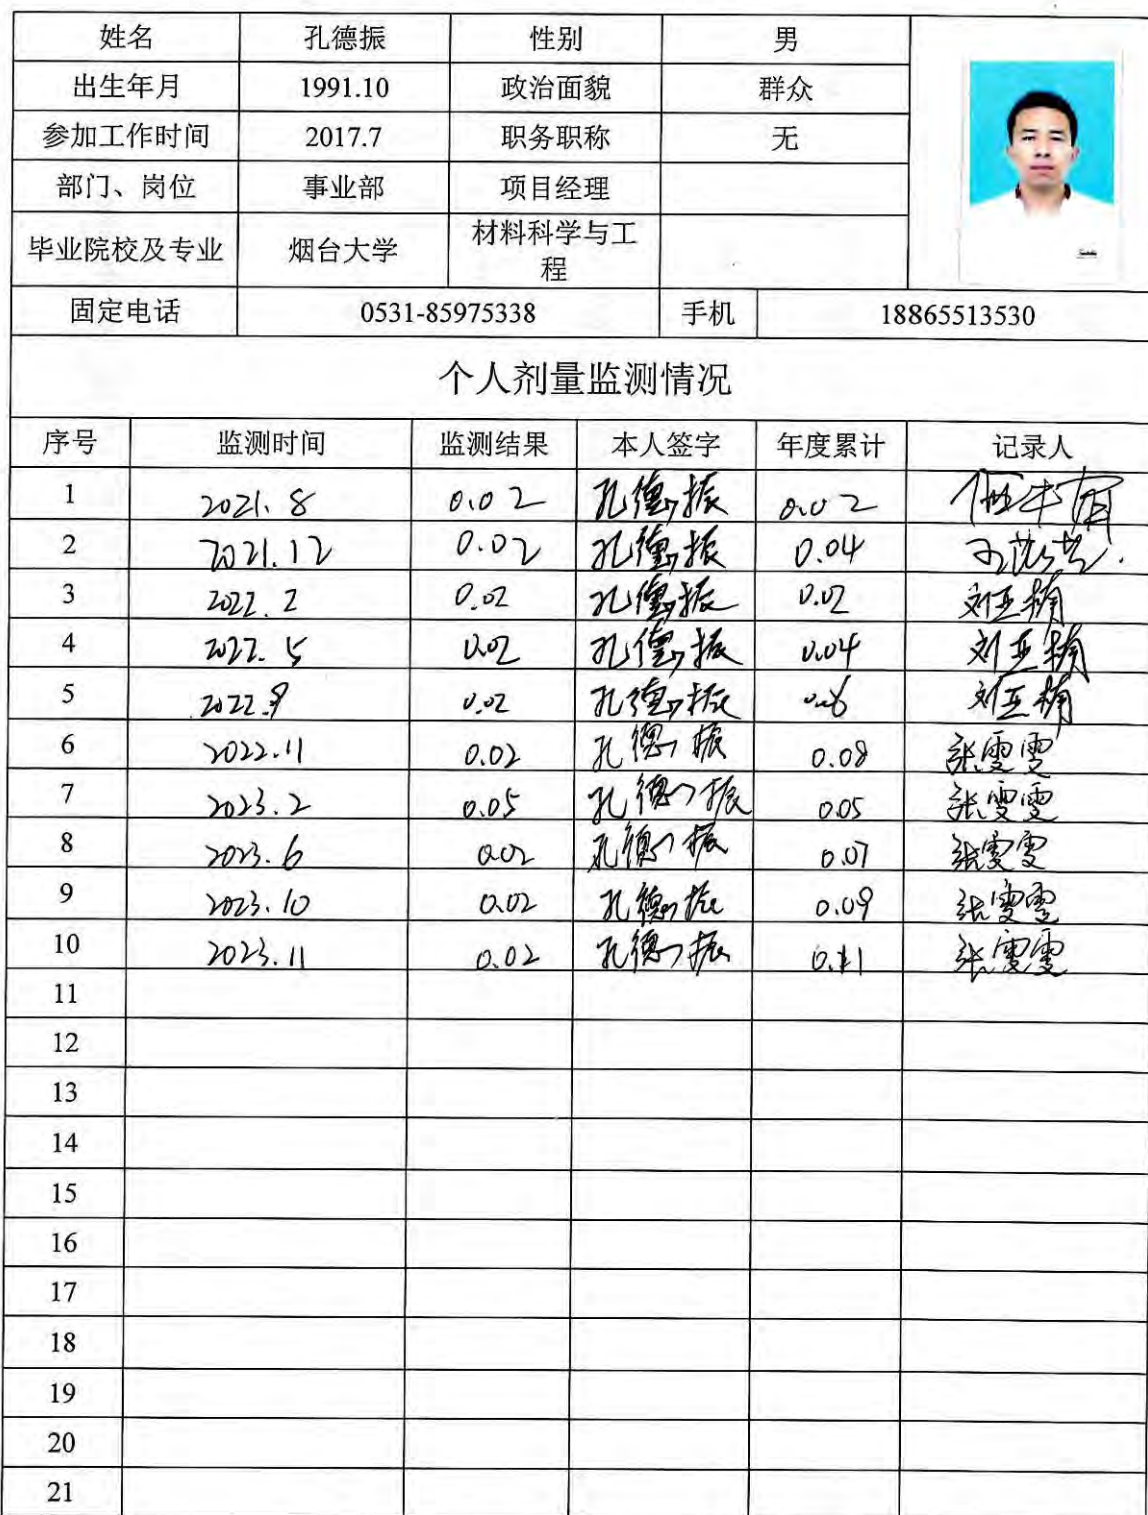 姓名 孔德振 性别 男
出生年月 1991.10 政治面貌 群众
参加工作时间 2017.7 职务职称 无
部门、岗位 事业部 项目经理
毕业院校及专业 烟台大学 材料科学与工
程
固定电话 0531-85975338 手机 18865513530
个人剂量监测情况
序号 监测时间 监测结果 本人签字 年度累计 记录人
1 2021.8 0.02 孔德振 0.02
2 2021.12 0.02 孔德振 0.04
3 2022.2 0.02 孔德振 0.02 刘亚楠
4 2022.5 0.02 孔德振 0.04 刘亚楠
5 2022.9 0.02 孔德振 刘亚楠
6 2022.11 0.02 孔德振 0.08 张雯雯
7 2023.2 0.05 孔德振 0.05 张雯雯
8 2023.6 0.02 孔德振 0.07 张雯雯
9 2023.10 0.02 孔德振 0.09 张雯雯
10 2023.11 0.02 孔德振 0.11 张雯雯
11
12
13
14
15
16
17
18
19
20
21